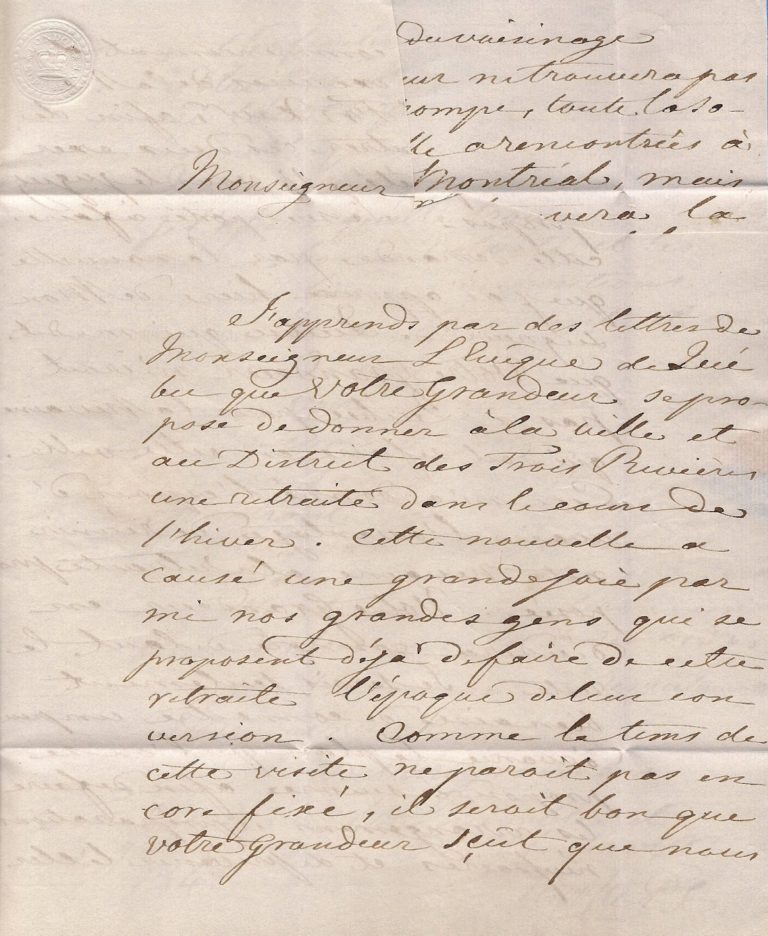 du voisinage
ur ne trouvera pas
ompe, toute la so-
lle a rencontrées à
Monseigneur Montréal, mais
vera la
J'apprends par des lettres de
Monseigneur L'Evêque de Qué
bec que Votre Grandeur se pro-
pose de donner à la ville et
au District des Trois Rivières
une retraite dans le cours de
l'hiver. Cette nouvelle a
causé une grande joie par
mi nos grandes gens qui se
proposent déjà de faire de cette
retraite l'époque de leur con
version. Comme le tems de
cette visite ne parait pas en
core fixé, il serait bon que
Votre Grandeur sçût que nous